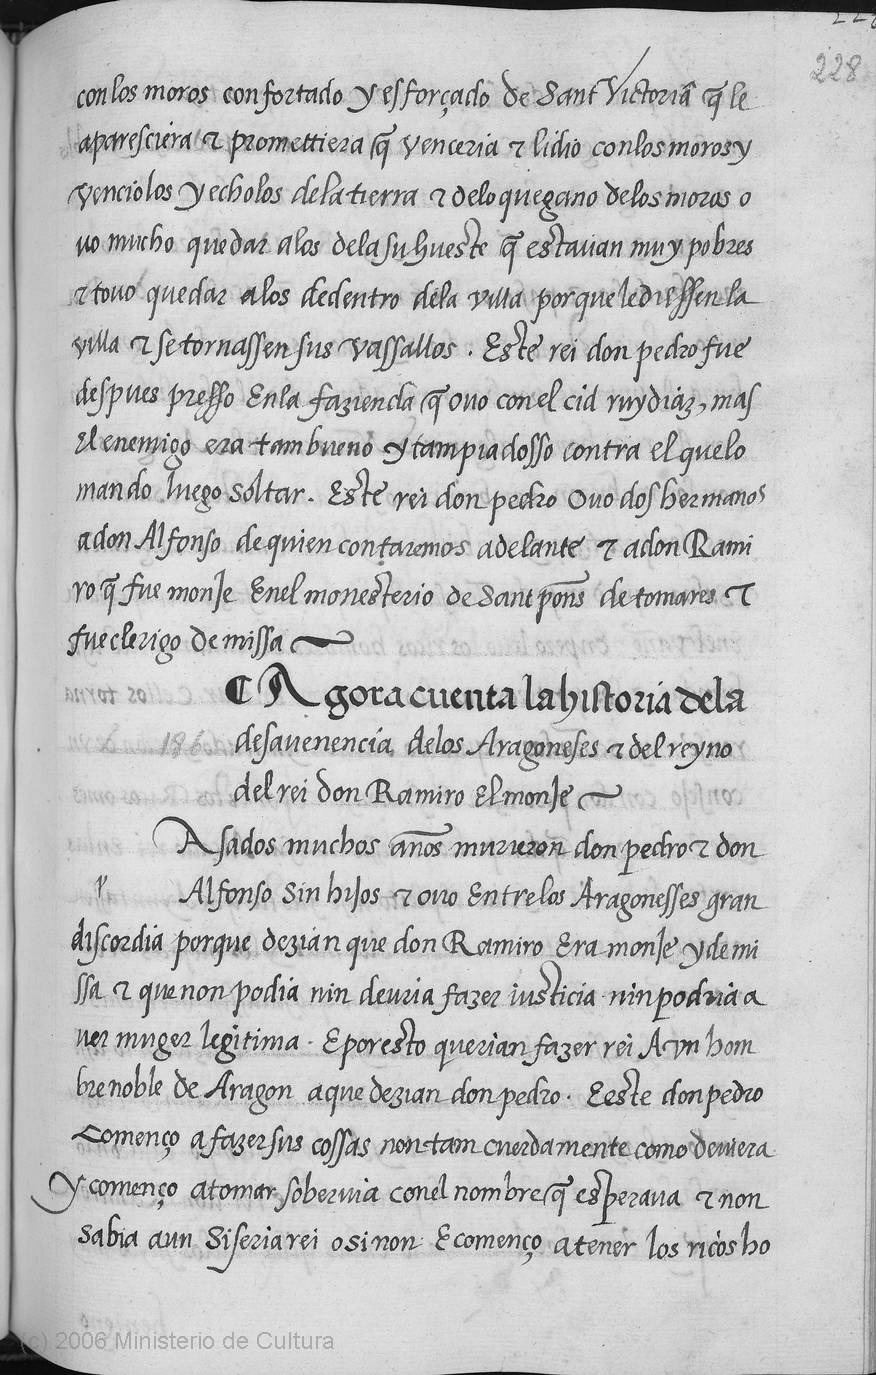 228
228
con los moros confortado y esforçado de Sant Victoriã q̃ le
aparesciera τ promettiera q̃ venceria τ lidio con los moros y
venciolos y echolos de la tierra τ de lo que gano de los moros o
uo mucho que dar a los de la su hueste q̃ estauan muy pobres
τ touo que dar a los de dentro de la villa porque le diessen la
villa τ se tornassen sus vassallos . Este rei don pedro fue
despues presso En la fazienda q̃ ouo con el cid ruy diaz, mas
El enemigo era tam bueno y tam piadosso contra el que lo
mando luego soltar . Este rei don pedro Ouo dos hermanos
a don Alfonso de quien contaremos adelante τ a don Rami
ro q̃ fue monje En el monesterio de Sant põns de tomares τ
fue clerigo de missa
¶ Agora cuenta la historia de la
desauenencia de los Aragoneses τ del reyno
186
del rei don Ramiro El monje
Asados muchos años murieron don pedro τ don
p
Alfonso Sin hijos τ ouo Entre los Aragonesses gran
discordia porque dezian que don Ramiro Era monje y de mi
ssa τ que non podia nin deuria fazer iusticia nin podria a
uer muger legitima . E por esto querian fazer rei A vn hom
bre noble de Aragon a que dezian don pedro . E este don pedro
Començo a fazer sus cossas non tam cuerdamente como deuiera
Y començo a tomar soberuia con el nombre q̃ esperaua τ non
Sabia aun Si seria rei o si non E començo a tener los ricos ho
(c) 2006 Ministerio de Cultura